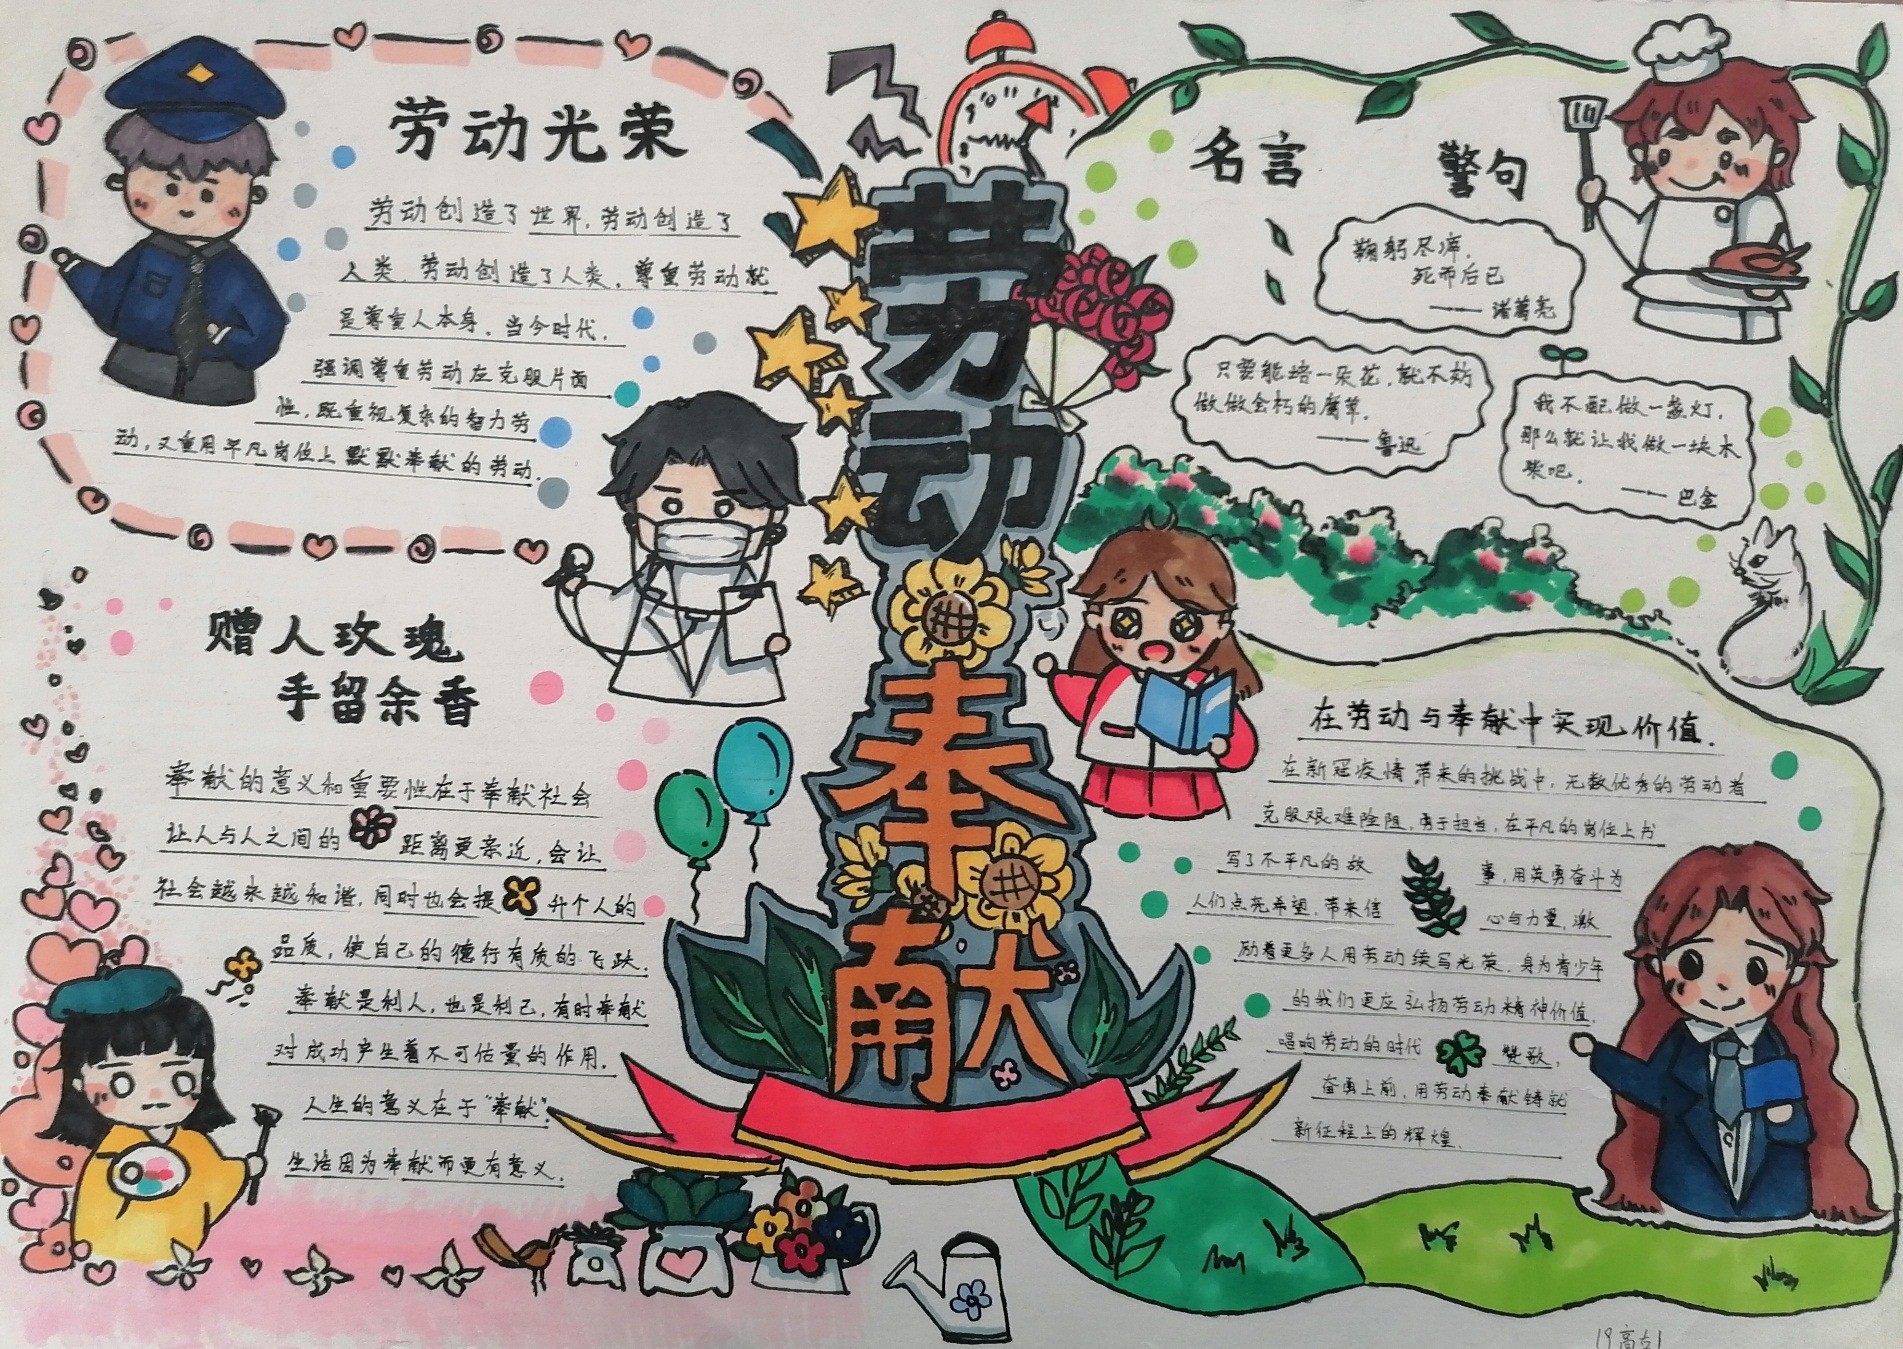 劳动光荣
劳动创造了世界,劳动创造了
人类,劳动创造了人类,尊重劳动就
是尊重人本身,当今时代,
强调尊重劳动在克服片面
性,既重视复杂的智力劳
动,又重用平凡岗位上默默奉献的劳动.
赠人玫瑰
手留余香
奉献的意义和重要性在于奉献社会
让人与人之间的距离更亲近,会让
社会越来越和谐,同时也会提升个人的
品质,使自己的德行有质的飞跃.
奉献是利人,也是利己,有时奉献
对成功产生着不可估量的作用.
人生的意义在于“奉献”.
生活因为奉献而更有意义.
劳动
奉献
名言 警句
鞠躬尽瘁,
死而后已
——诸葛亮
只要能培一朵花,就不妨
做做会朽的腐草.
——鲁迅
我不配做一盏灯,
那么就让我做一块木
柴吧.
——巴金
在劳动与奉献中实现价值.
在新冠疫情带来的挑战中,无数优秀的劳动者
克服艰难险阻,勇于担当,在平凡的岗位上书
写了不平凡的故事,用英勇奋斗为
人们点亮希望,带来信心与力量,激
励着更多人用劳动续写光荣.身为青少年
的我们更应弘扬劳动精神价值,
唱响劳动的时代赞歌,
奋勇上前,用劳动奉献铸就
新征程上的辉煌.